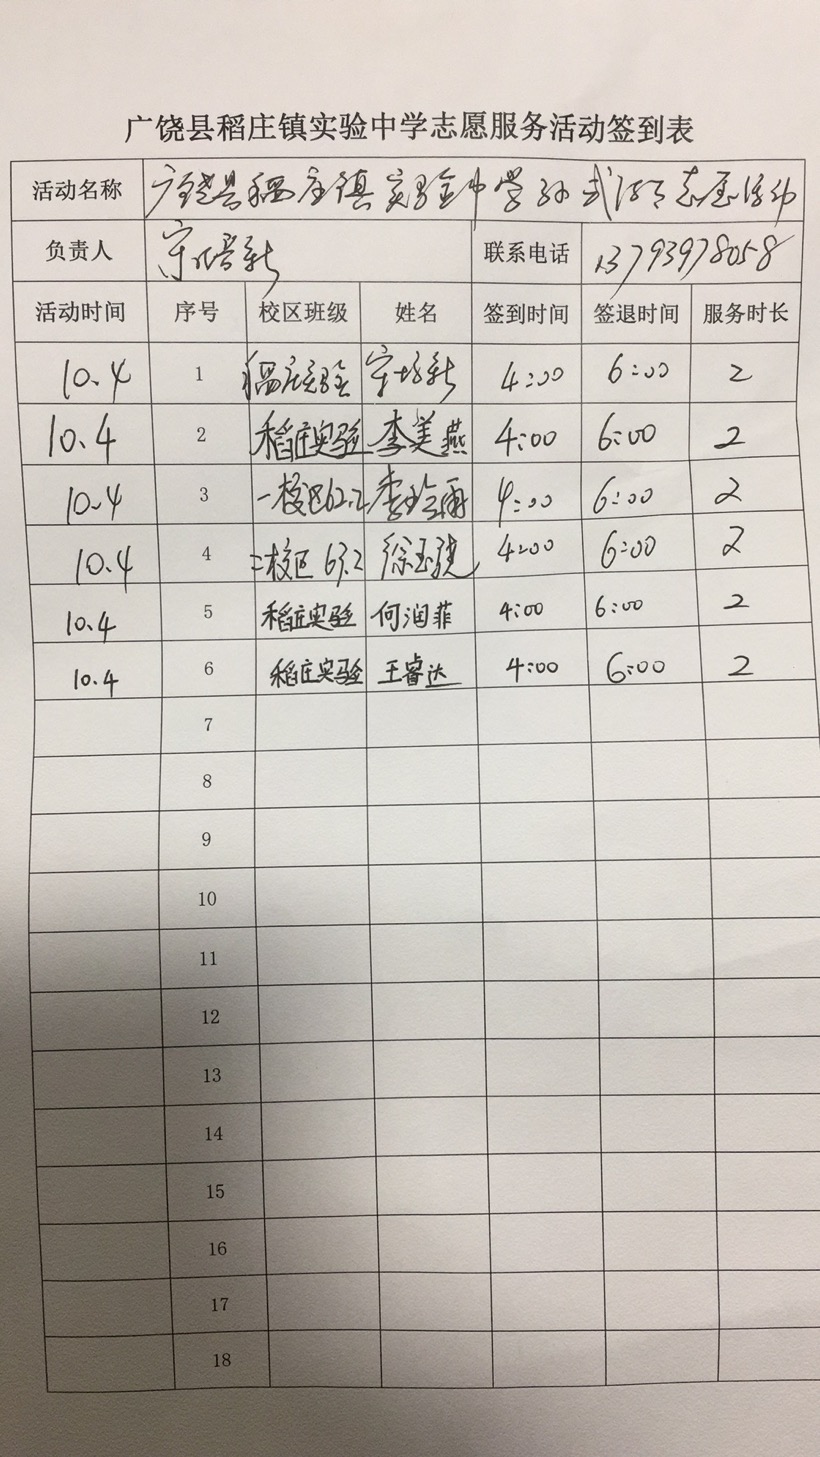 广饶县稻庄镇实验中学志愿服务活动签到表
活动名称 广饶县稻庄镇实验中学孙武湖志愿活动
负责人 宋培新 联系电话 13793978058
活动时间 序号 校区班级 姓名 签到时间 签退时间 服务时长
10.4 1 稻庄实验 宋培新 4:00 6:00 2
10.4 2 稻庄实验 李美燕 4:00 6:00 2
10.4 3 一校区62.2 李玲雨 4:00 6:00 2
10.4 4 二校区 63.2 徐玉骁 4:00 6:00 2
10.4 5 稻庄实验 何润菲 4:00 6:00 2
10.4 6 稻庄实验 王睿达 4:00 6:00 2
7
8
9
10
11
12
13
14
15
16
17
18